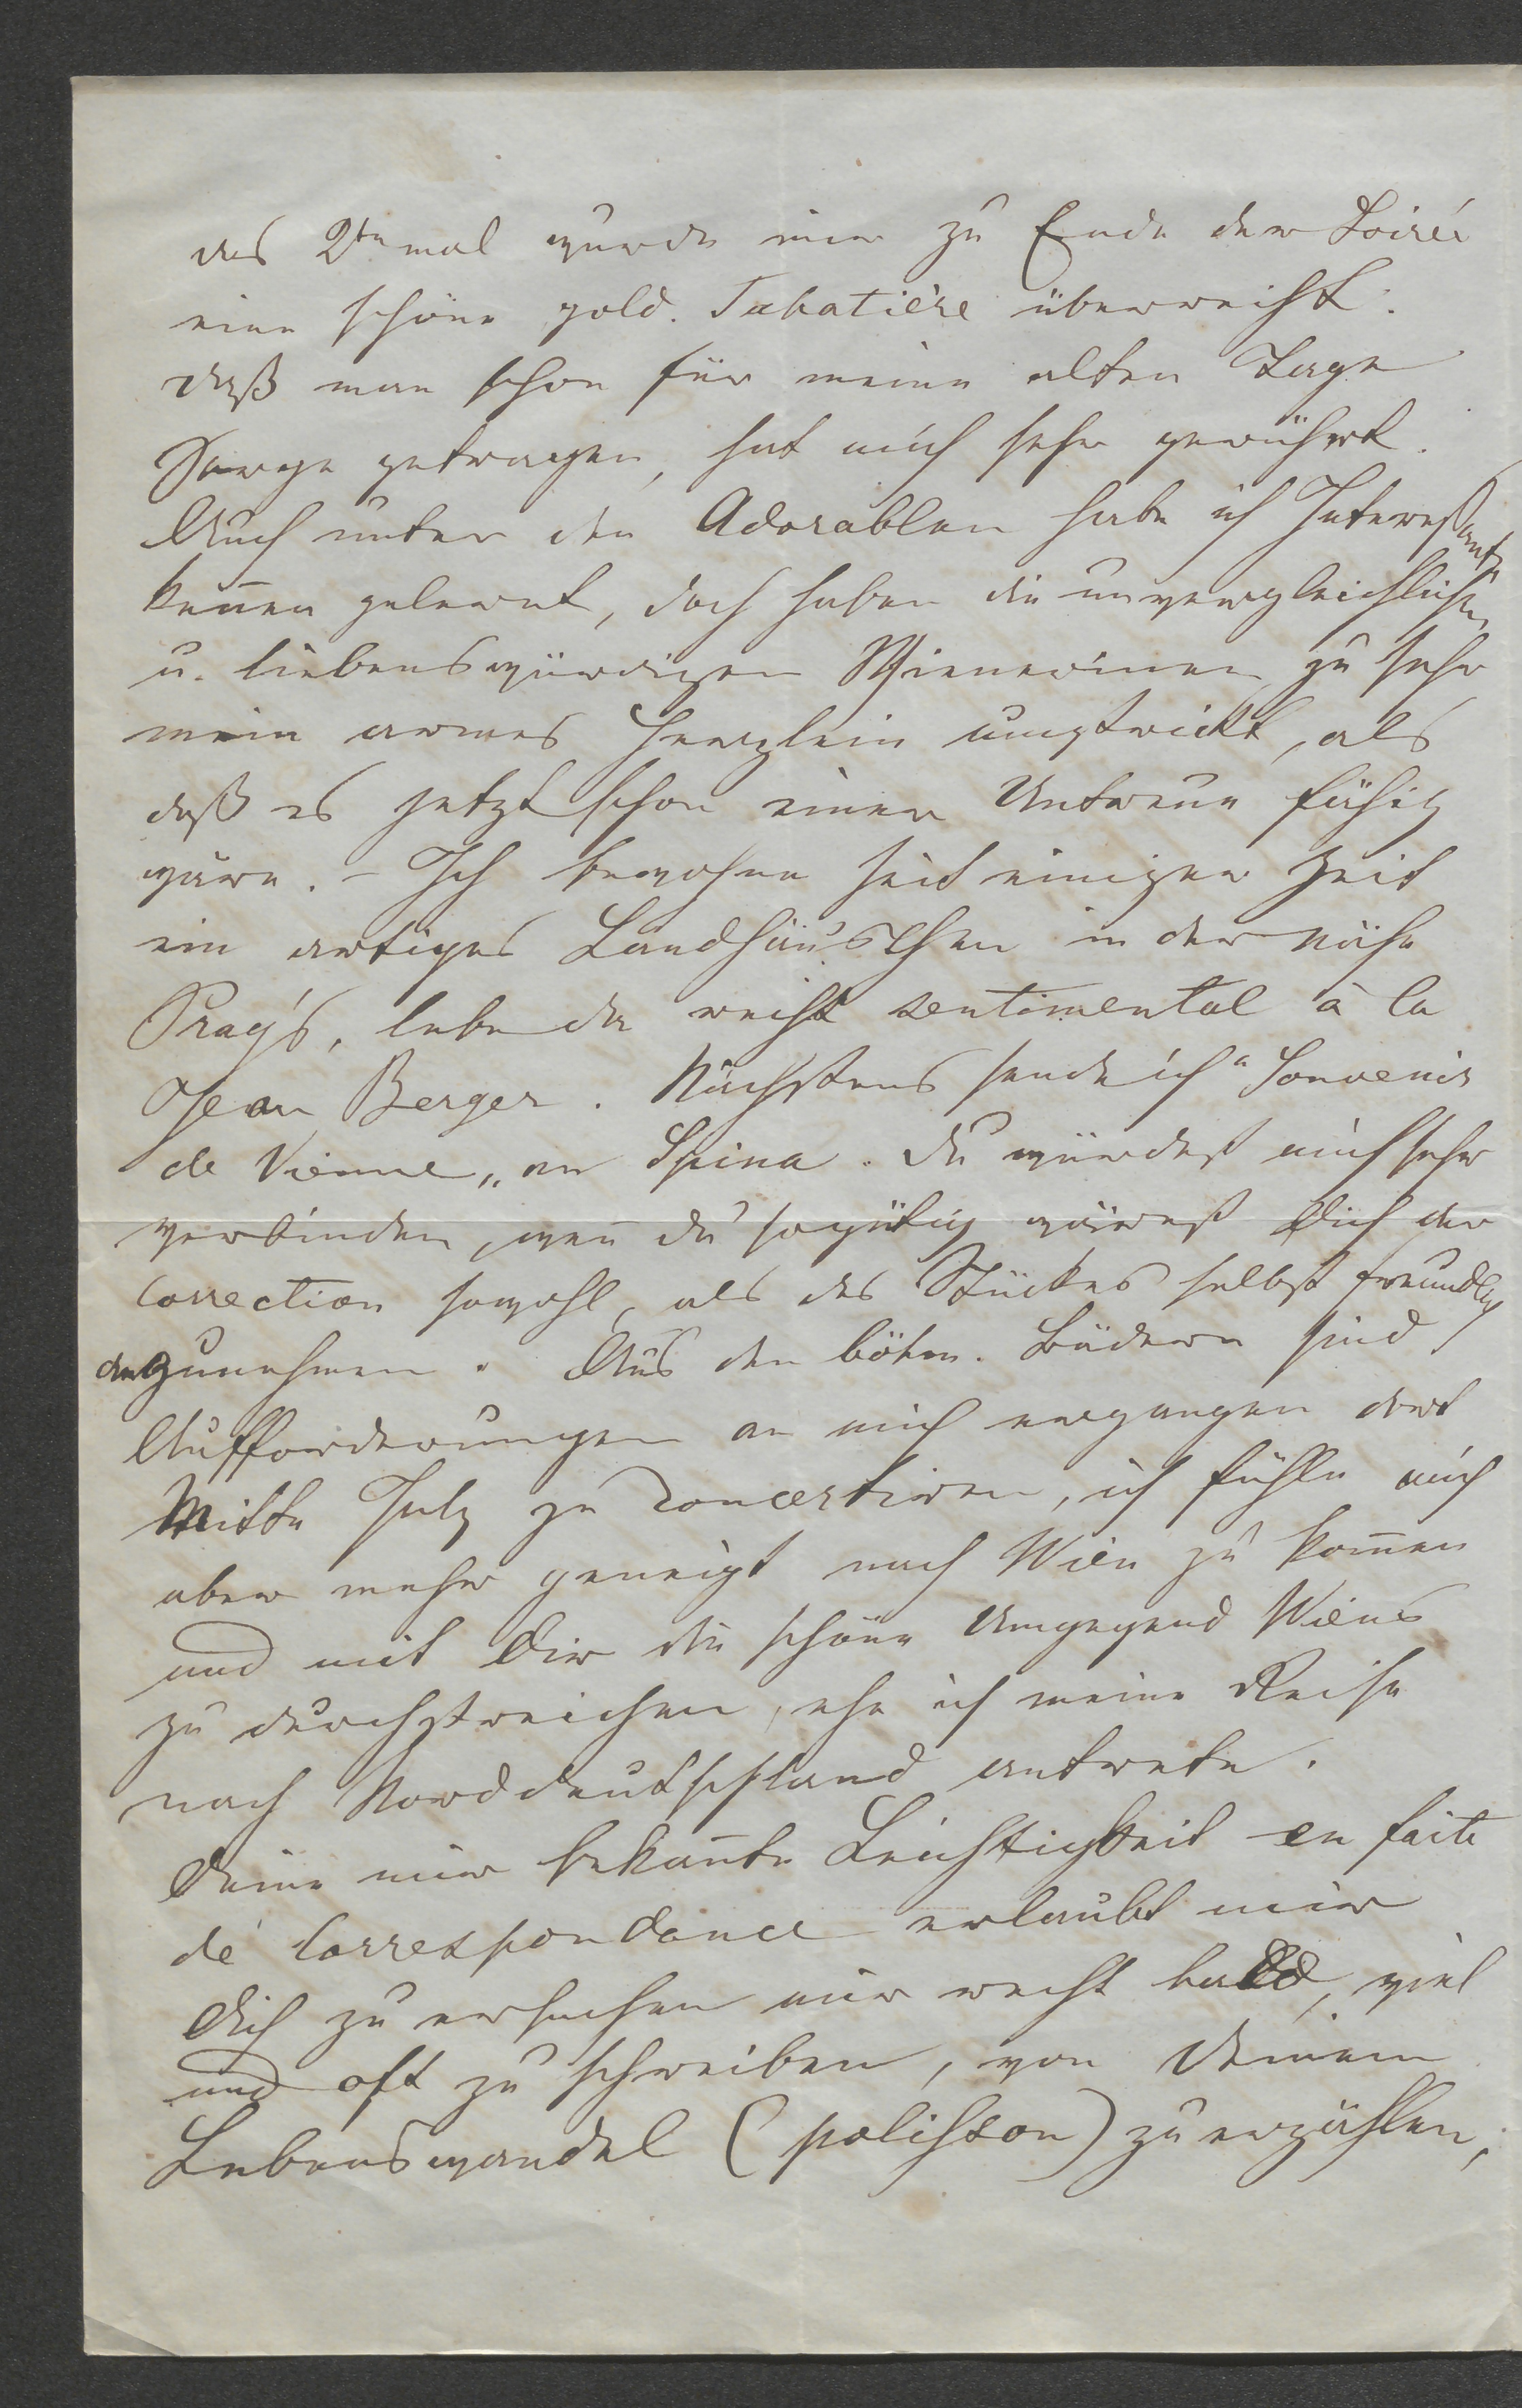 das 2te mal wurde mir zu Ende der Soirée
eine schöne gold. Tabatière überreicht.
daß man schon für meine alten Tage
Sorge getragen, hat mich sehr gerührt.
Auch unter den Adorablen habe ich Interessante
keñen gelernt, doch haben die unvergleichlichen
u. liebenswürdigen Wienerinen zu sehr
mein armes Herzlein umstrickt, als
daß es jetzt schon einer Untreue fähig
wäre. – Ich bewohne seit einiger Zeit
ein artiges Landhäuschen in der Nähe
Prag's, lebe da recht sentimental à la
Jean Berger. Nächstens sende ich "Souvenir
de Vienne„ an Spina. Du würdest mich sehr
verbinden, weñ du so gütig wärest Dich der
Correction sowohl, als des Stückes selbst freundlich
anzunehmen. Aus den böhm. Bädern sind
Aufforderungen an mich ergangen dort
Mitte July zu Concertiren, ich fühle mich
aber mehr geneigt nach Wien zu kom̃en
und mit Dir die schöne Umgegend Wiens
zu durchstreichen, ehe ich meine Reise
nach Norddeutschland antrete.
Deine mir bekañte Leichtigkeit en faite
de Correspondance erlaubt mir
Dich zu ersuchen mir recht bald, viel
und oft zu schreiben, von Deinem
Lebenswandel (polisson) zu erzählen,